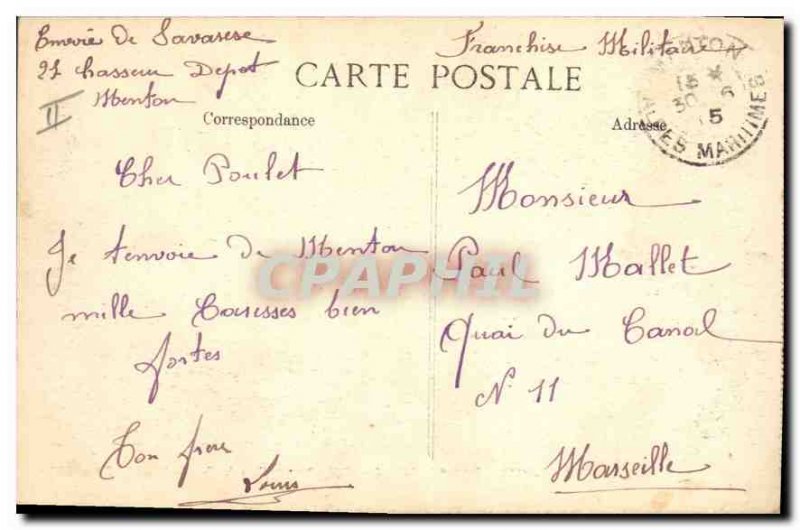 Envoie de Savarese
27 Chasseur Depot
Menton
II
Franchise Militaire
CARTE POSTALE
Correspondance
Adresse
MENTON
30 6
15
ALPES MARITIMES
Cher Poulet
Je t'envoie de Menton
mille Caresses bien
fortes
Ton frere
Louis
Monsieur
Paul Mallet
Quai du Canal
N 11
Marseille
CPAPHIL